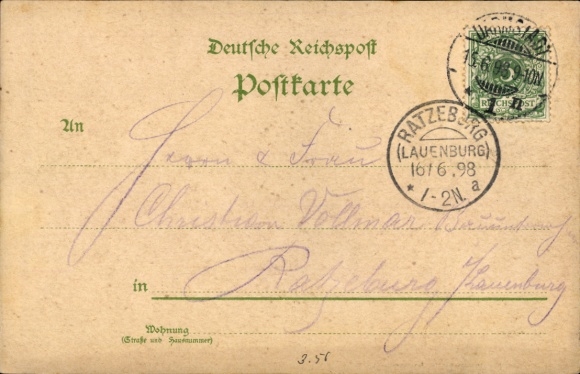 Deutsche Reichspost
Postkarte
15.6.98.9-10N.
REICHSPOST
1 n
RATZEBURG
(LAUENBURG)
16/6.98
* 1-2N. a
An
Herrn & Frau
Christian Vollmar
in
Ratzeburg Lauenburg
Wohnung
(Straße und Hausnummer)
3.56